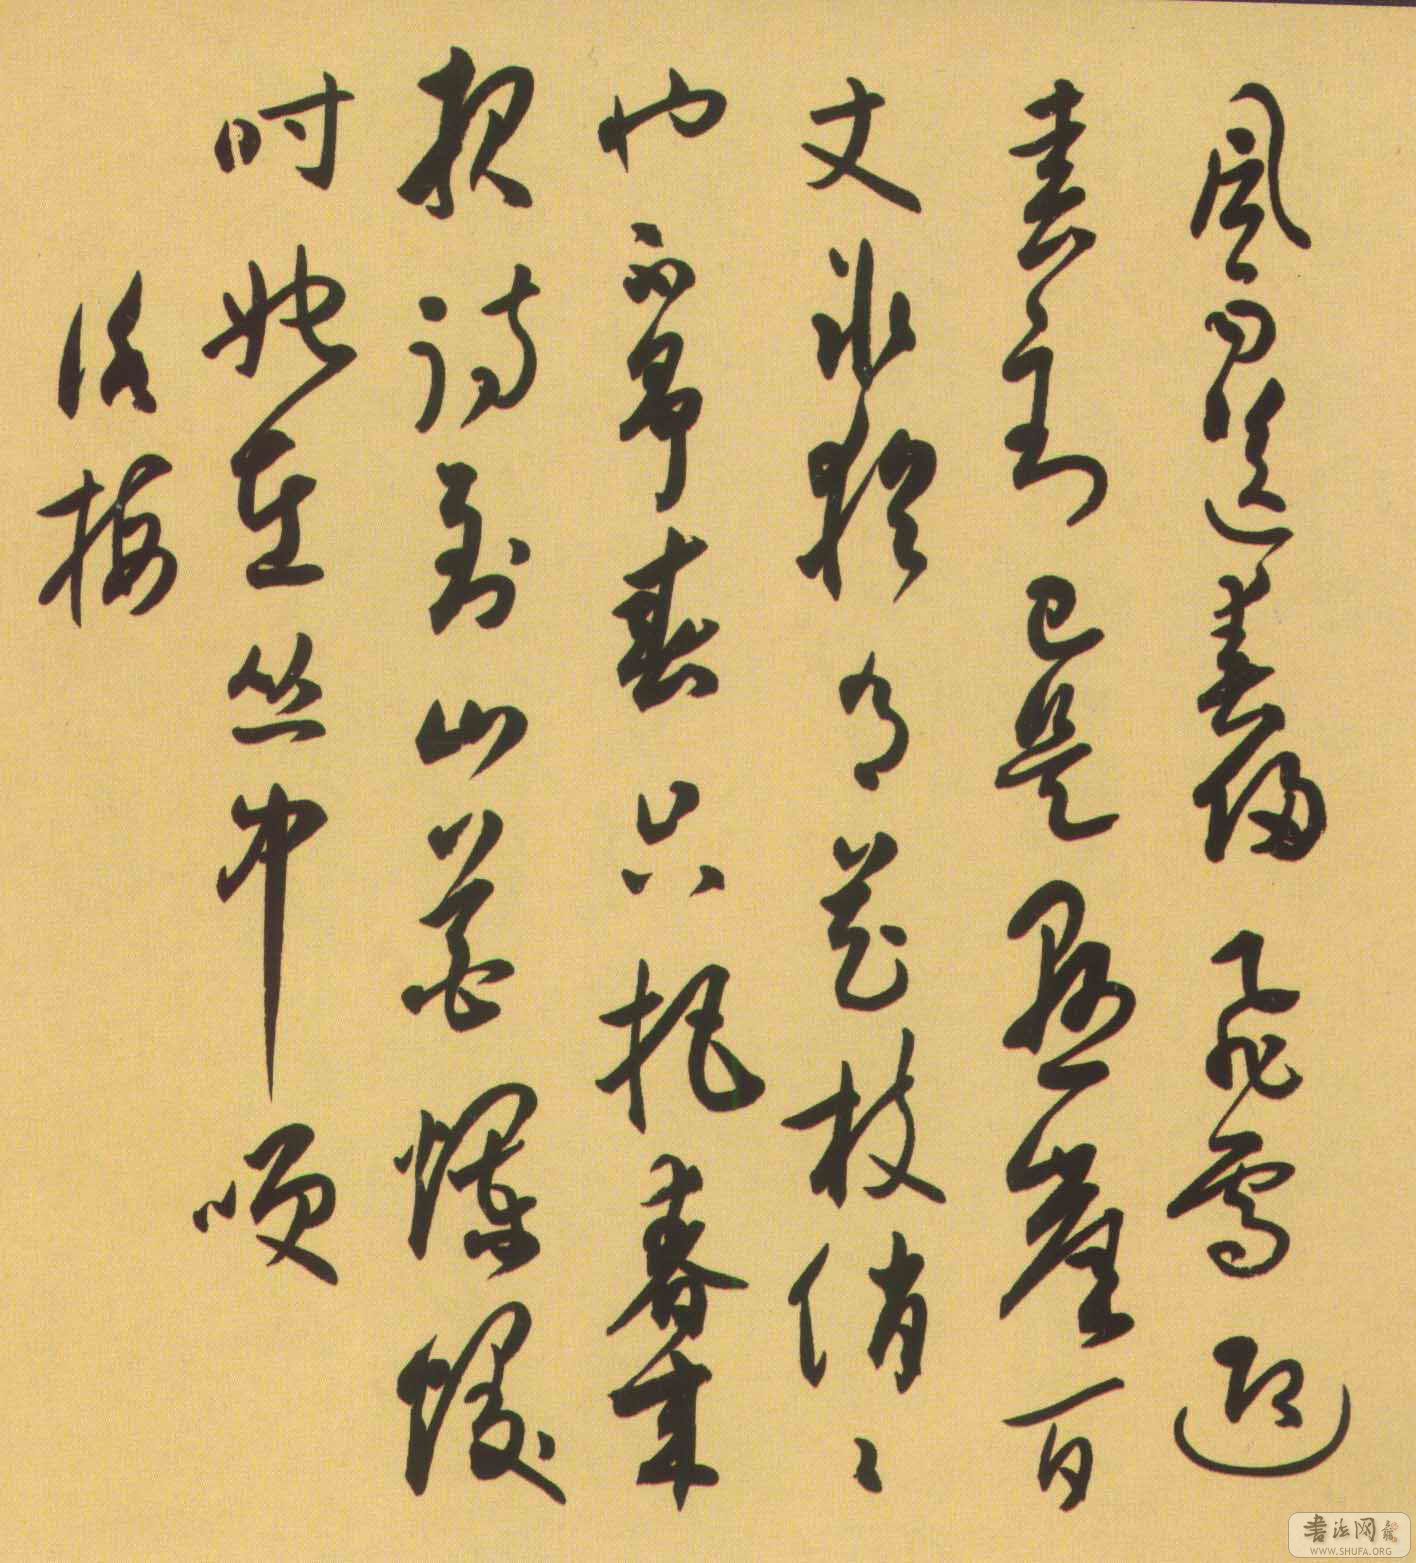 風雨送春归飛雪迎
春到已是悬崖百
丈冰犹有花枝俏〻
也不争春只把春来
报待到山花烂漫
时她在丛中咲
咏梅
書法网
WWW.SHUFA.ORG